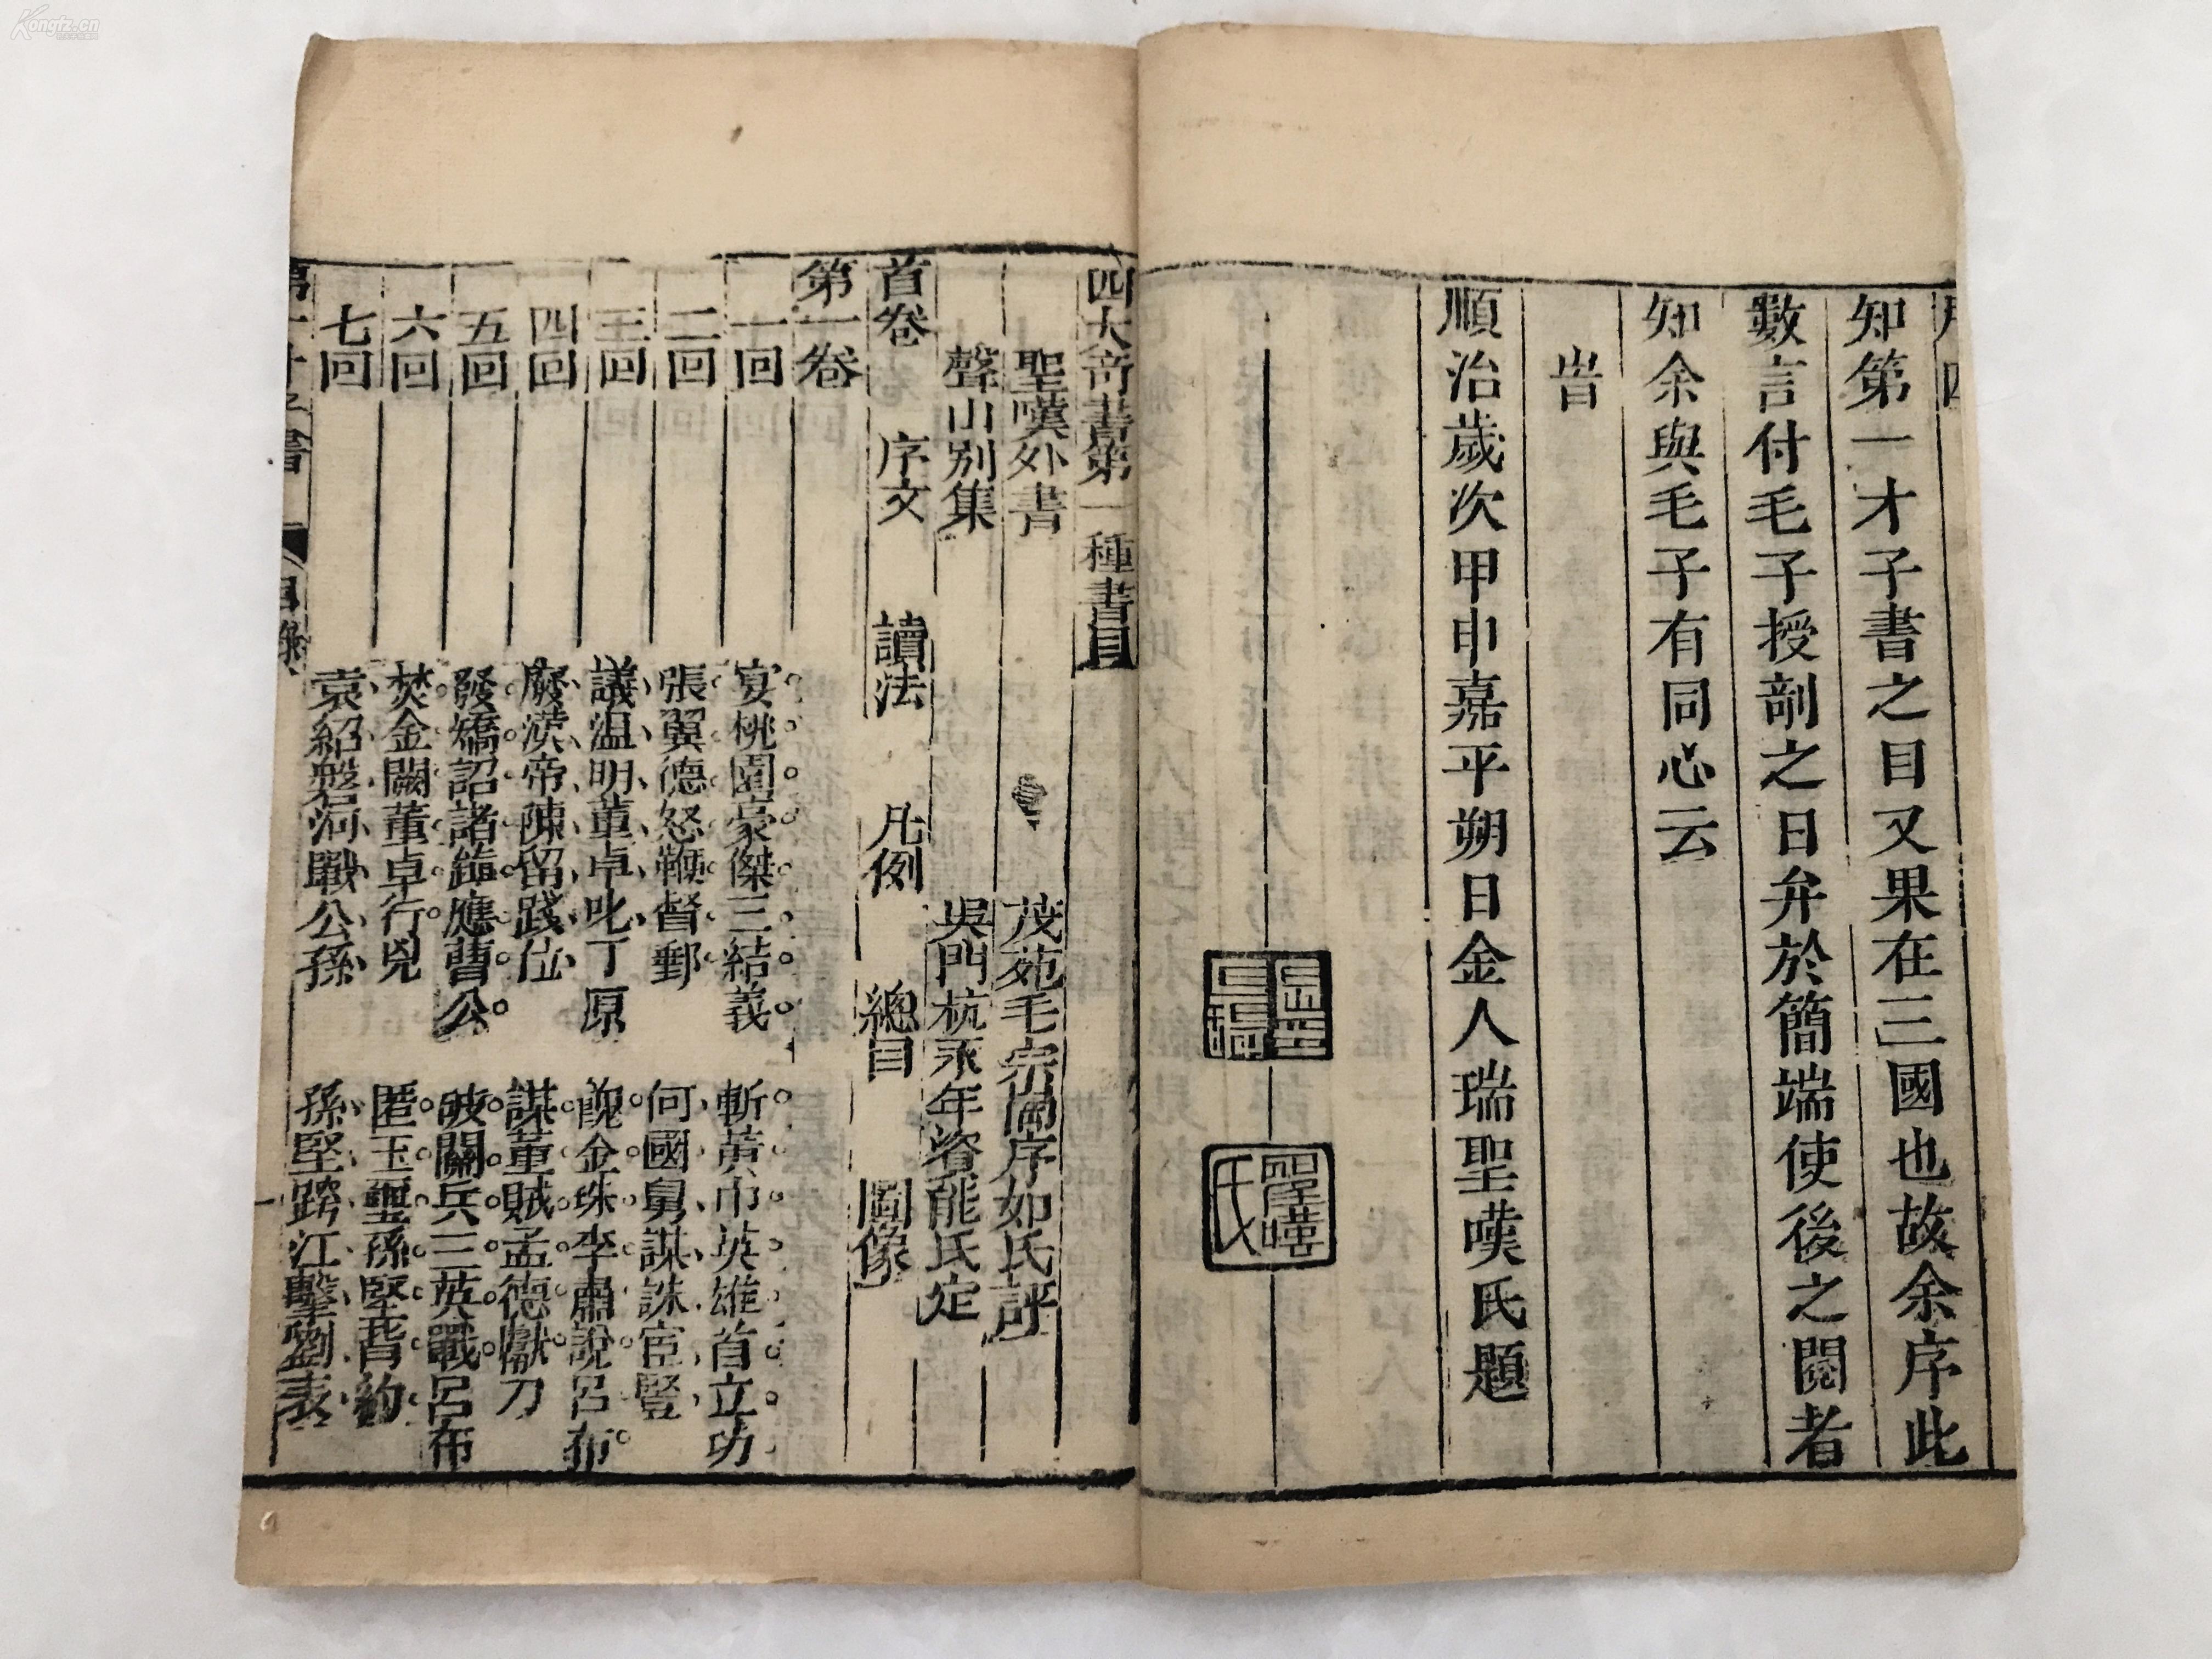 知第一才子書之目又果在三國也故余序此
數言付毛子授剞之日弁於簡端使後之閱者
知余與毛子有同心云
旹
順治歲次甲申嘉平朔日金人瑞聖嘆氏題
聖嘆氏
四大奇書第一種書目
聖嘆外書 茂苑毛宗崗序始氏評
聲山別集 吳門杭永年資能氏定
首卷 序文 讀法 凡例 總目 圖像
第一卷
一回 宴桃園豪傑三結義 斬黃巾英雄首立功
二回 張翼德怒鞭督郵 何國舅謀誅宦豎
三回 議温明董卓叱丁原 餽金珠李肅說呂布
四回 廢漢帝陳留踐位 謀董賊孟德獻刀
五回 發矯詔諸鎮應曹公 破關兵三英戰呂布
六回 焚金闕董卓行兇 匿玉璽孫堅背約
七回 袁紹磐河戰公孫 孫堅跨江擊劉表
第一才子書 目錄 一
Kongfz.cn